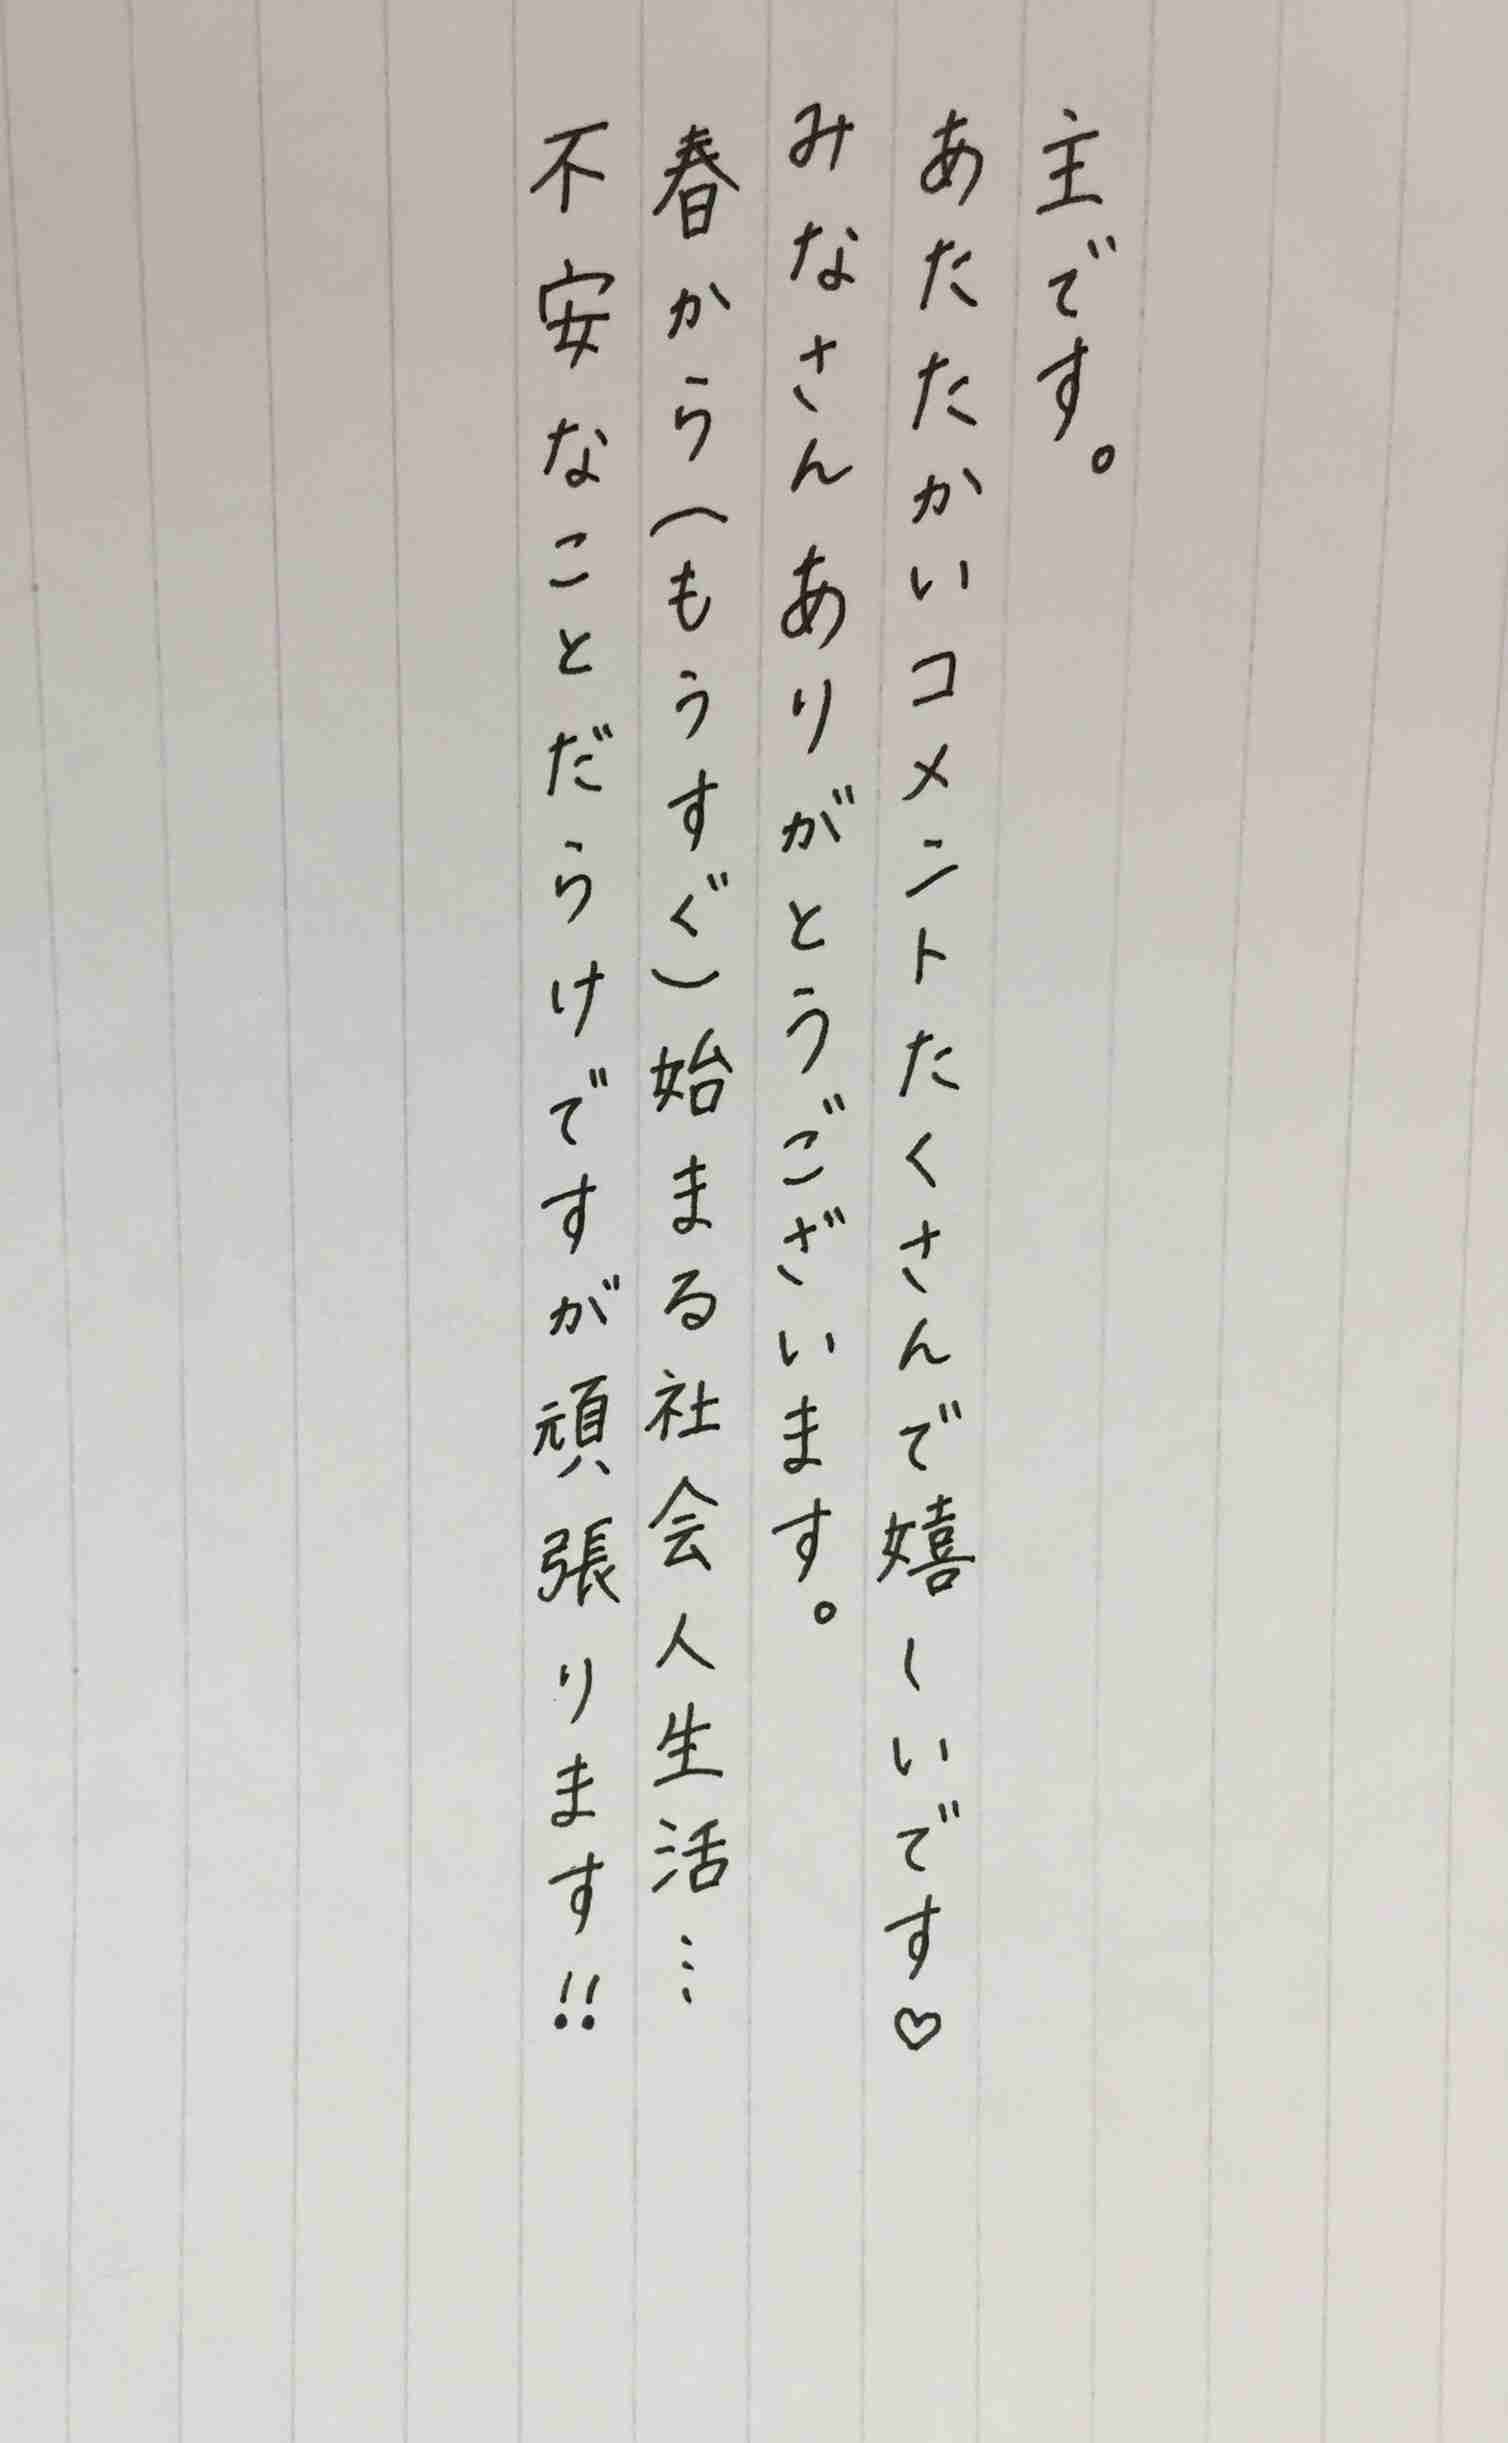 主です。
あたたかいコメントたくさんで嬉しいです♡
みなさんありがとうございます。
春から(もうすぐ)始まる社会人生活…
不安なことだらけですが頑張ります!!